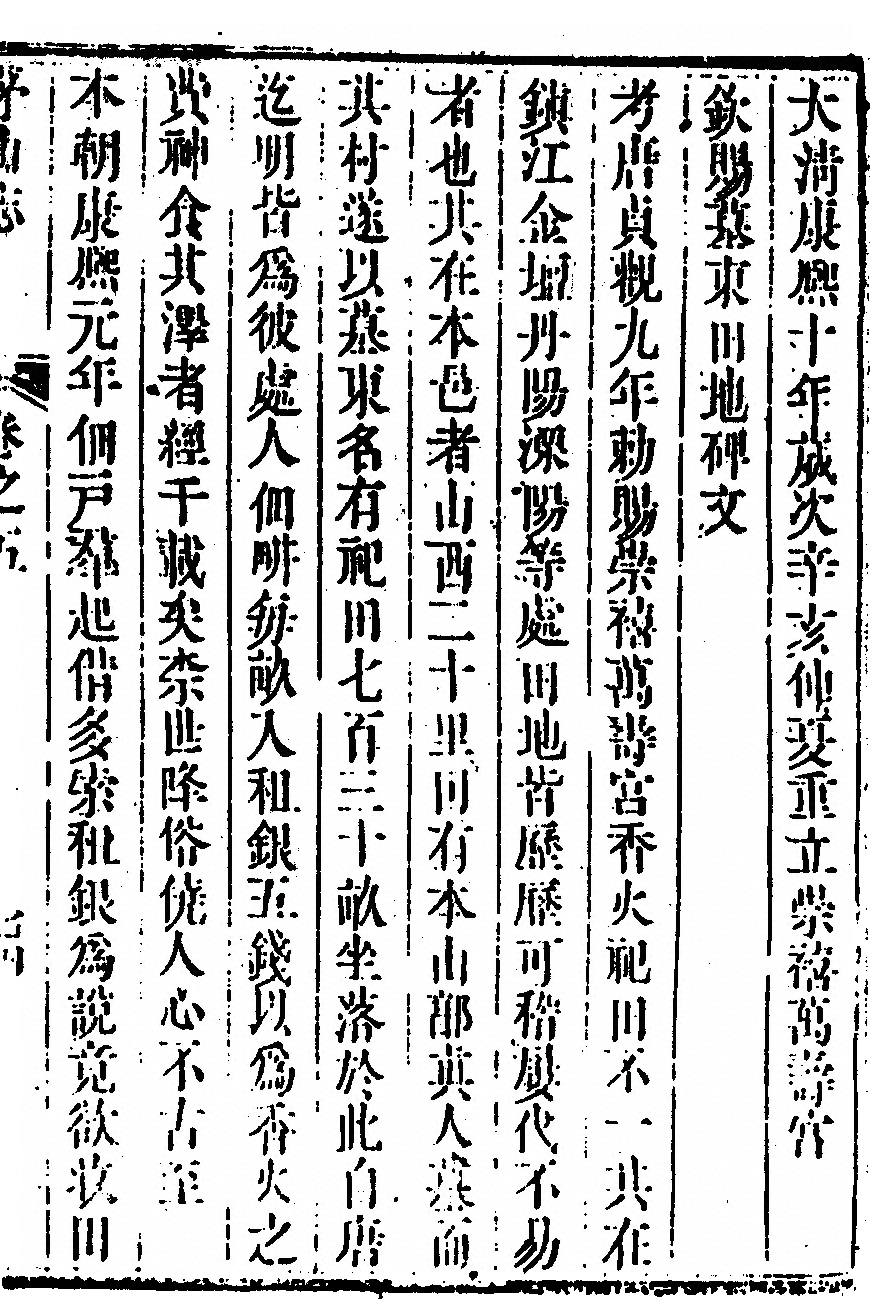 大清康熙十年歲次辛亥仲夏重立崇禧萬壽宮
欽賜墓東田地碑文
考唐貞觀九年勅賜崇禧萬壽宮香火祀田不一其在
鎮江金壇丹陽溧陽等處田地皆歷歷可稽屢代不易
者也其在本邑者山西二十里同有本山郭真人墓而
其村遂以墓東名有祀田七百三十畝坐落於此自唐
迄明皆爲彼處人佃畊每畝入租銀五錢以爲香火之
貲神食其澤者經千載矣柰世降俗侥人心不古至
本朝康熙元年佃戶群起偕多索租銀爲說竟欲收田
茅山志
卷之